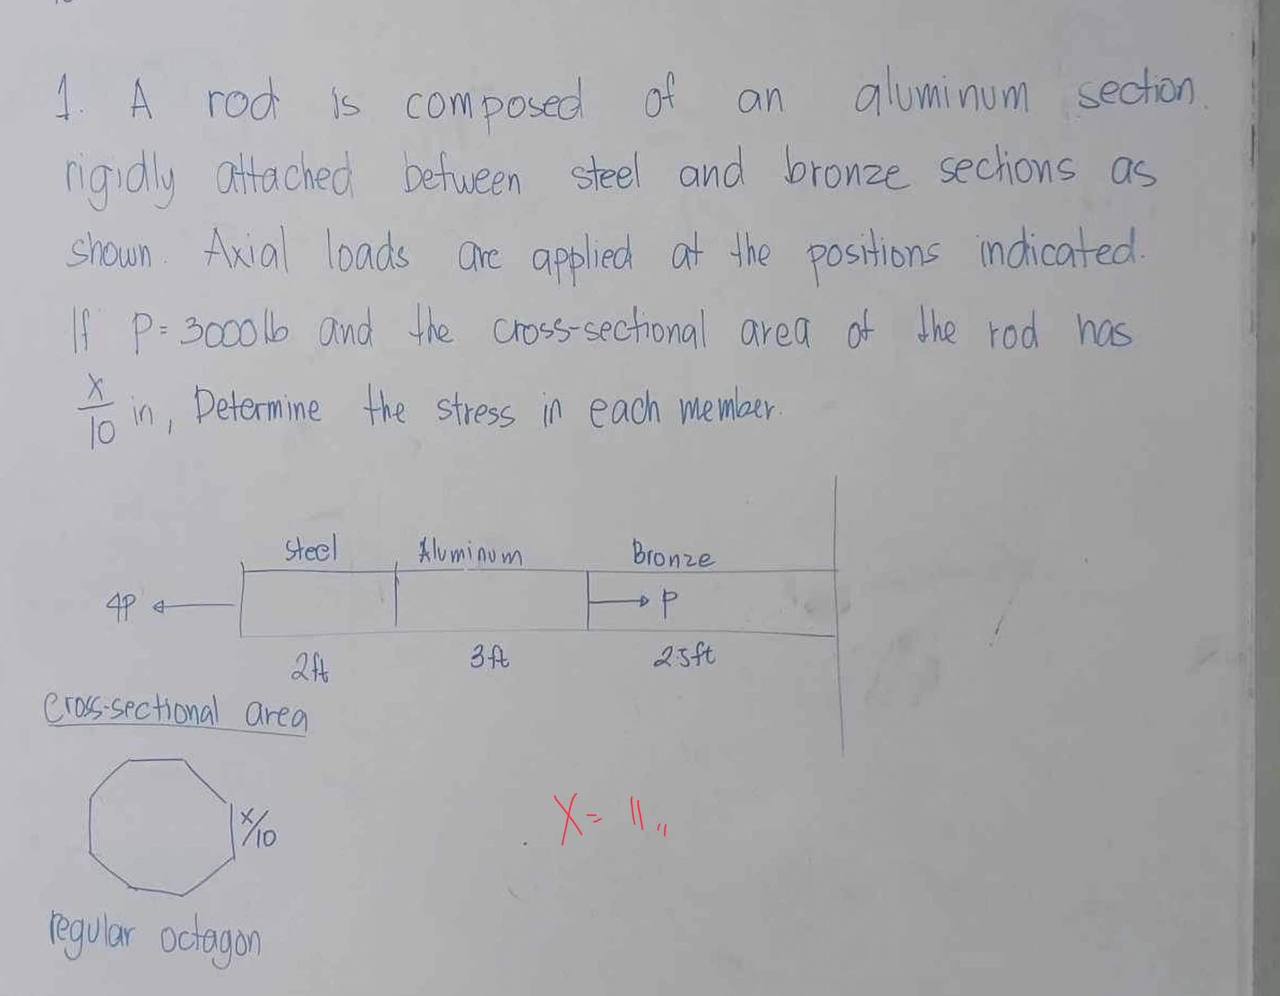 1. A rod is composed of an aluminum section.
rigidly attached between steel and bronze sections as
shown. Axial loads are applied at the positions indicated.
If P = 3000 lb and the cross-sectional area of the rod has
x/10 in, Determine the stress in each member.
Steel Aluminum Bronze
4P P
2ft 3ft 2.5ft
cross-sectional area
x/10
X = 11 "
regular octagon